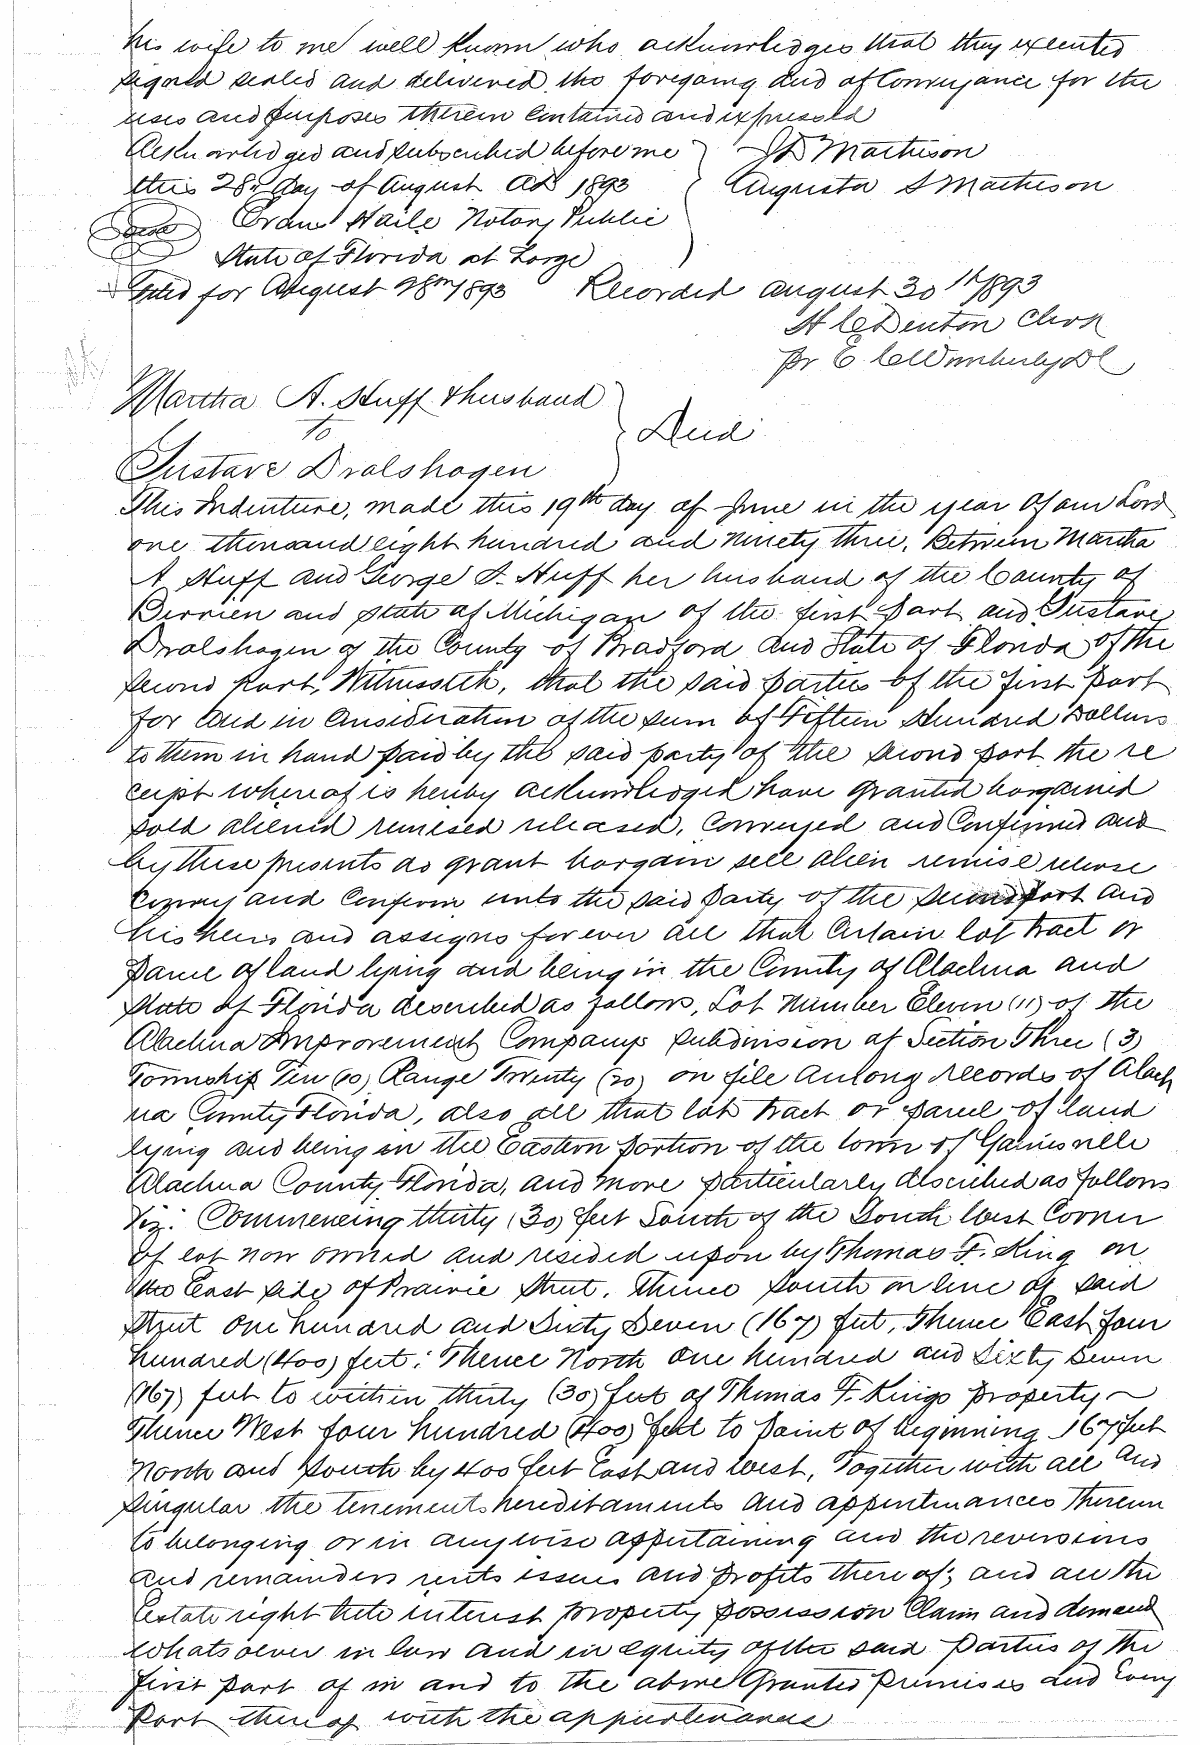 his wife to me well known who acknowledges that they executed
signed sealed and delivered the foregoing deed of Conveyance for the
uses and purposes therein contained and expressed
Acknowledged and subscribed before me J D Matheson
this 28th day of August AD 1893 Augusta S Matheson
Seal Evans Haile Notary Public
State of Florida at Large
Filed for August 28th 1893 Recorded August 30th 1893
H C Denton Clerk
pr E C Wimberly DC
Martha A. Huff & husband
To
Deed
Gustave Dralshagen
This Indenture, made this 19th day of June in the year of our Lord
one thousand eight hundred and ninety three, Between Martha
A. Huff and George S. Huff her husband of the County of
Berrien and State of Michigan of the first part and Gustave
Dralshagen of the County of Bradford and State of Florida of the
second part, Witnesseth, that the said parties of the first part
for and in Consideration of the sum of Fifteen Hundred Dollars
to them in hand paid by the said party of the second part the re
ceipt whereof is hereby acknowledged have granted bargained
sold aliened remised released, conveyed and Confirmed and
by these presents do grant bargain sell alien remise release
Convey and Confirm unto the said party of the second part and
his heirs and assigns forever all that Certain lot tract or
parcel of land lying and being in the County of Alachua and
State of Florida described as follows, Lot number Eleven (11) of the
Alachua Improvement Companys subdivision of Section Three (3)
Township Ten (10) Range Twenty (20) on file among records of Alach
ua County Florida, also all that lot tract or parcel of land
lying and being in the Eastern portion of the town of Gainesville
Alachua County, Florida, and more particularly described as follows
Viz: Commencing thirty (30) feet South of the South West Corner
of lot now owned and resided upon by Thomas F. King on
the East side of Prairie Street. Thence South on line of said
Street One hundred and Sixty Seven (167) feet, Thence East four
hundred (400) feet; Thence North One hundred and Sixty Seven
(167) feet to within thirty (30) feet of Thomas F. Kings property
Thence West four hundred (400) feet to Point of beginning 167 feet
North and South by 400 feet East and West, Together with all and
singular the tenements hereditaments and appurtenances thereun
to belonging or in anywise appertaining and the reversions
and remainders rents issues and profits thereof; and all the
Estate right title interest property possession Claim and demand
whatsoever in law and in equity of the said parties of the
first part of in and to the above Granted Premises and Every
Part thereof with the appurtenances